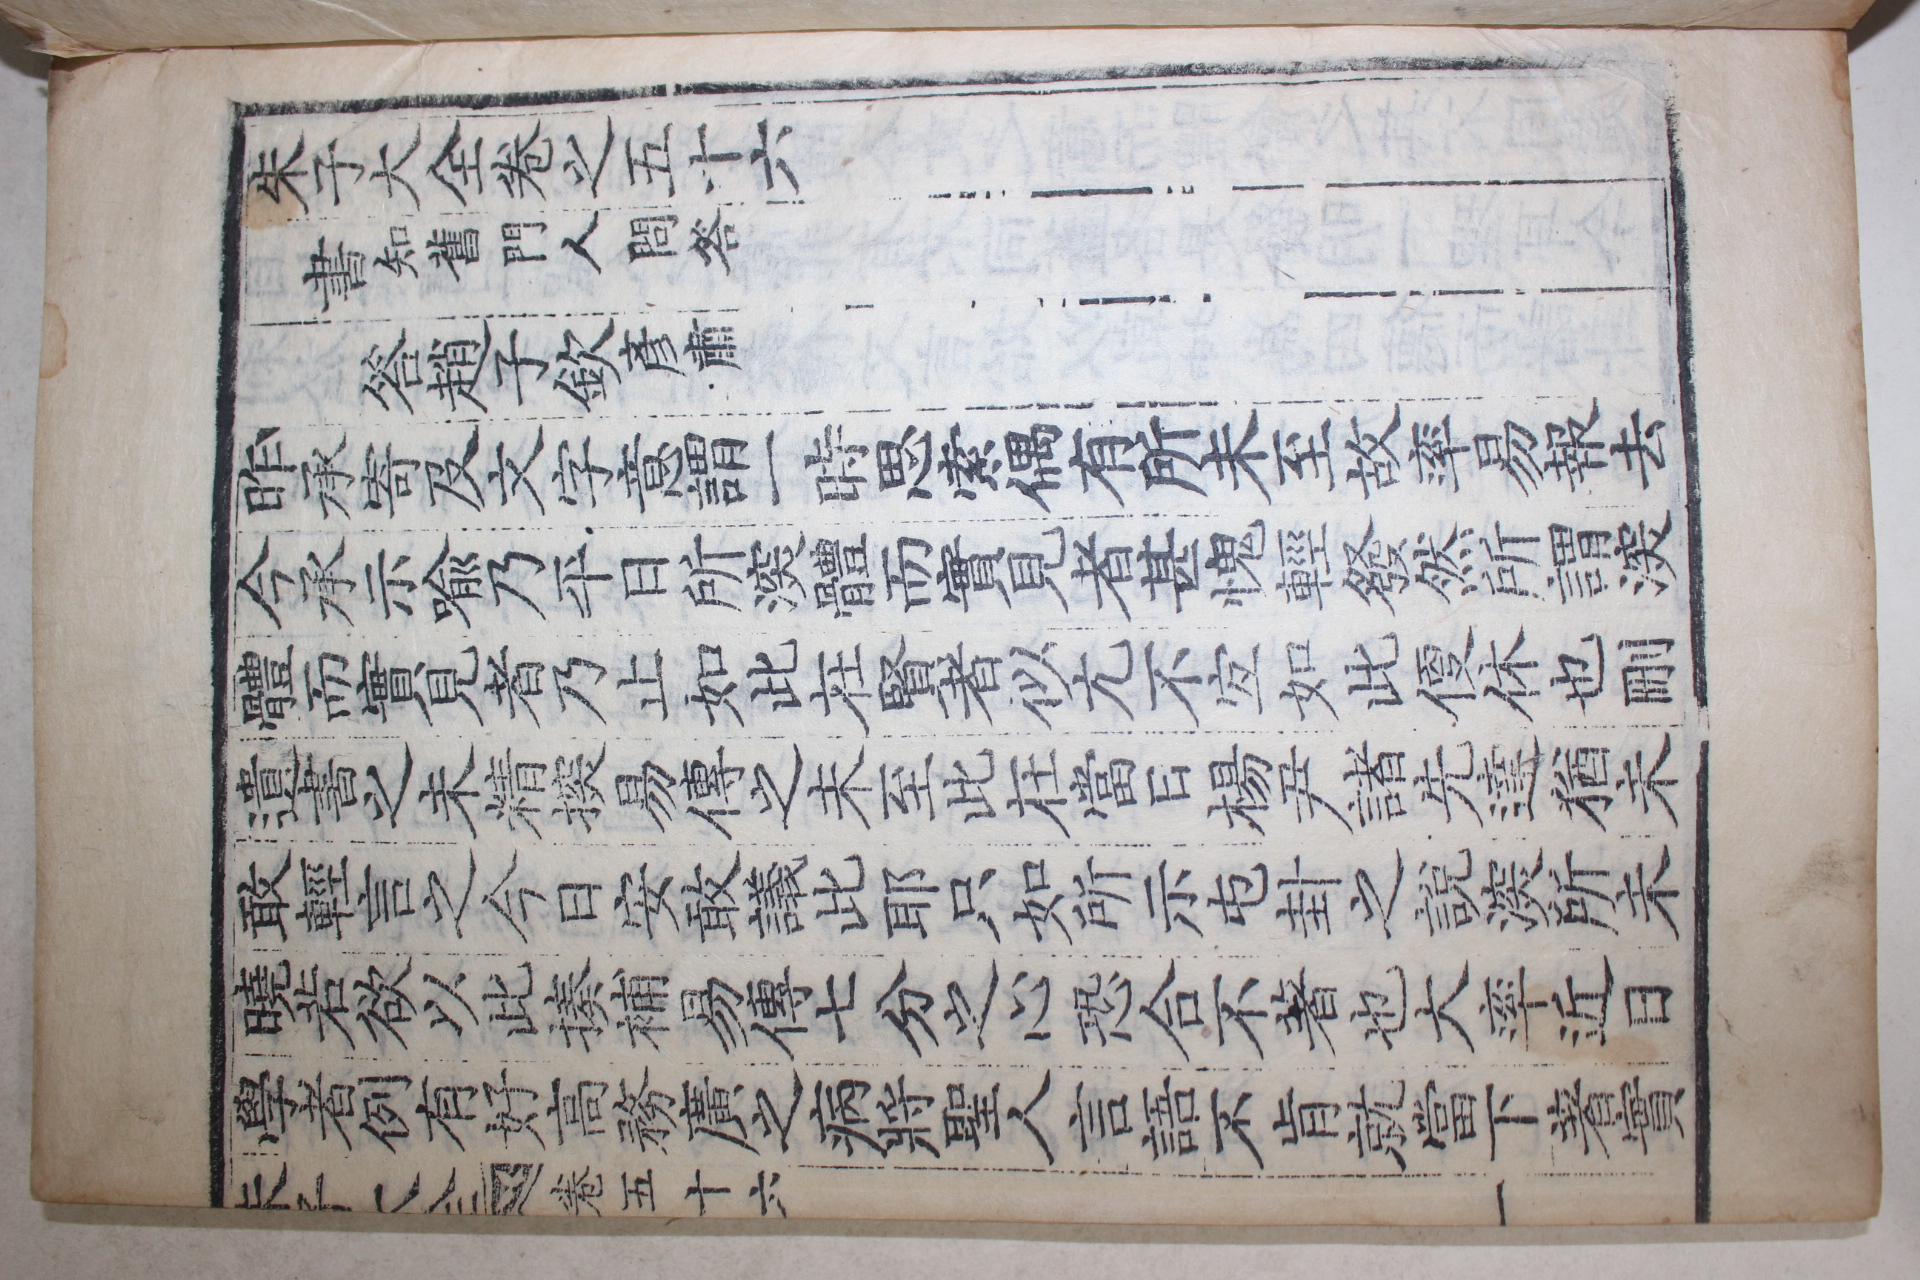 朱子大全卷之五十六
書知舊門人問答
答趙子欽彦肅
昨承寄及文字意謂一時思索偶有所未至故率易報去
今承示喻乃平日所深體而實見者甚愧輕發然所謂深
體而實見者乃止如此在賢者似尤不应如此便休也刪
遺書之未精擬易傳之未至此在當日楊尹諸先達猶未
敢輕言之今日安敢議此耶只如所示屯卦之說深所未
曉若欲以此接補易傳七分之心恐合不著也大率近日
學者例有好高務廣之病將聖人言語不肯就當下著實
朱子大全 卷五十六 一